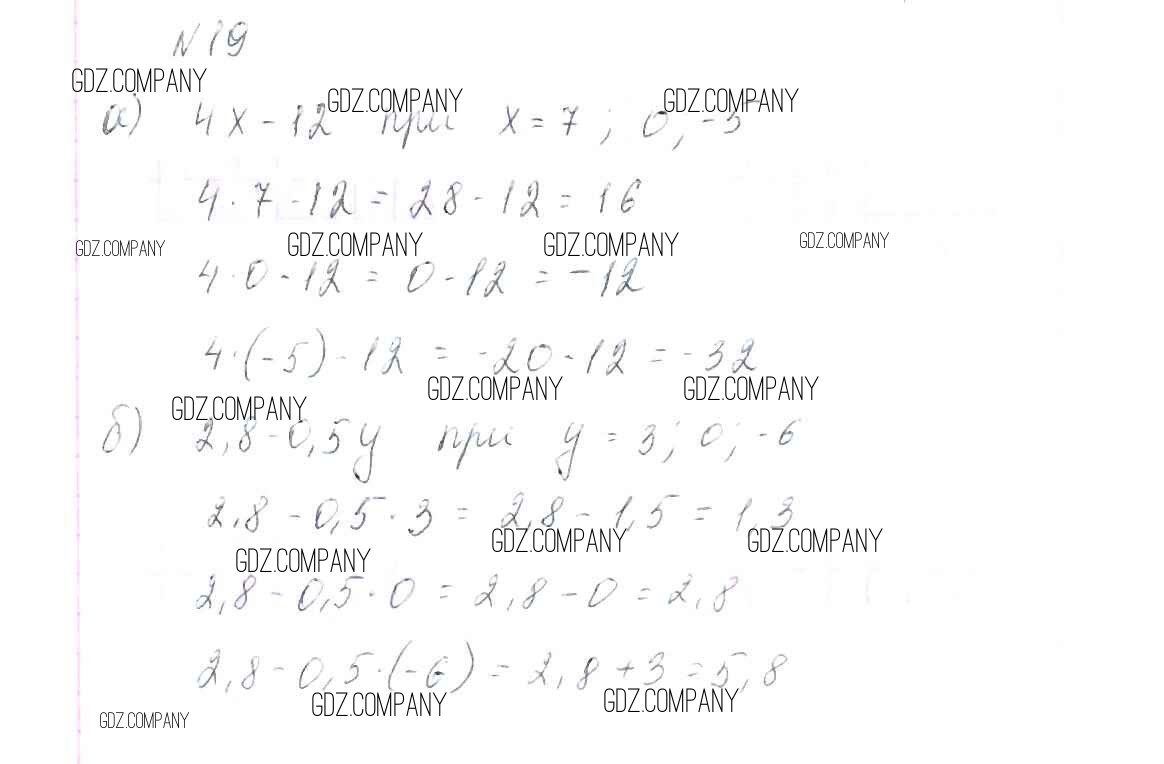 N 19
GDZ.COMPANY
GDZ.COMPANY GDZ.COMPANY
а) 4x - 12 при x = 7 ; 0 ; -5
4 · 7 - 12 = 28 - 12 = 16
GDZ.COMPANY GDZ.COMPANY GDZ.COMPANY GDZ.COMPANY
4 · 0 - 12 = 0 - 12 = -12
4 · (-5) - 12 = -20 - 12 = -32
GDZ.COMPANY GDZ.COMPANY
GDZ.COMPANY
б) 2,8 - 0,5y при y = 3; 0; -6
2,8 - 0,5 · 3 = 2,8 - 1,5 = 1,3
GDZ.COMPANY GDZ.COMPANY
GDZ.COMPANY
2,8 - 0,5 · 0 = 2,8 - 0 = 2,8
2,8 - 0,5 · (-6) = 2,8 + 3 = 5,8
GDZ.COMPANY GDZ.COMPANY
GDZ.COMPANY